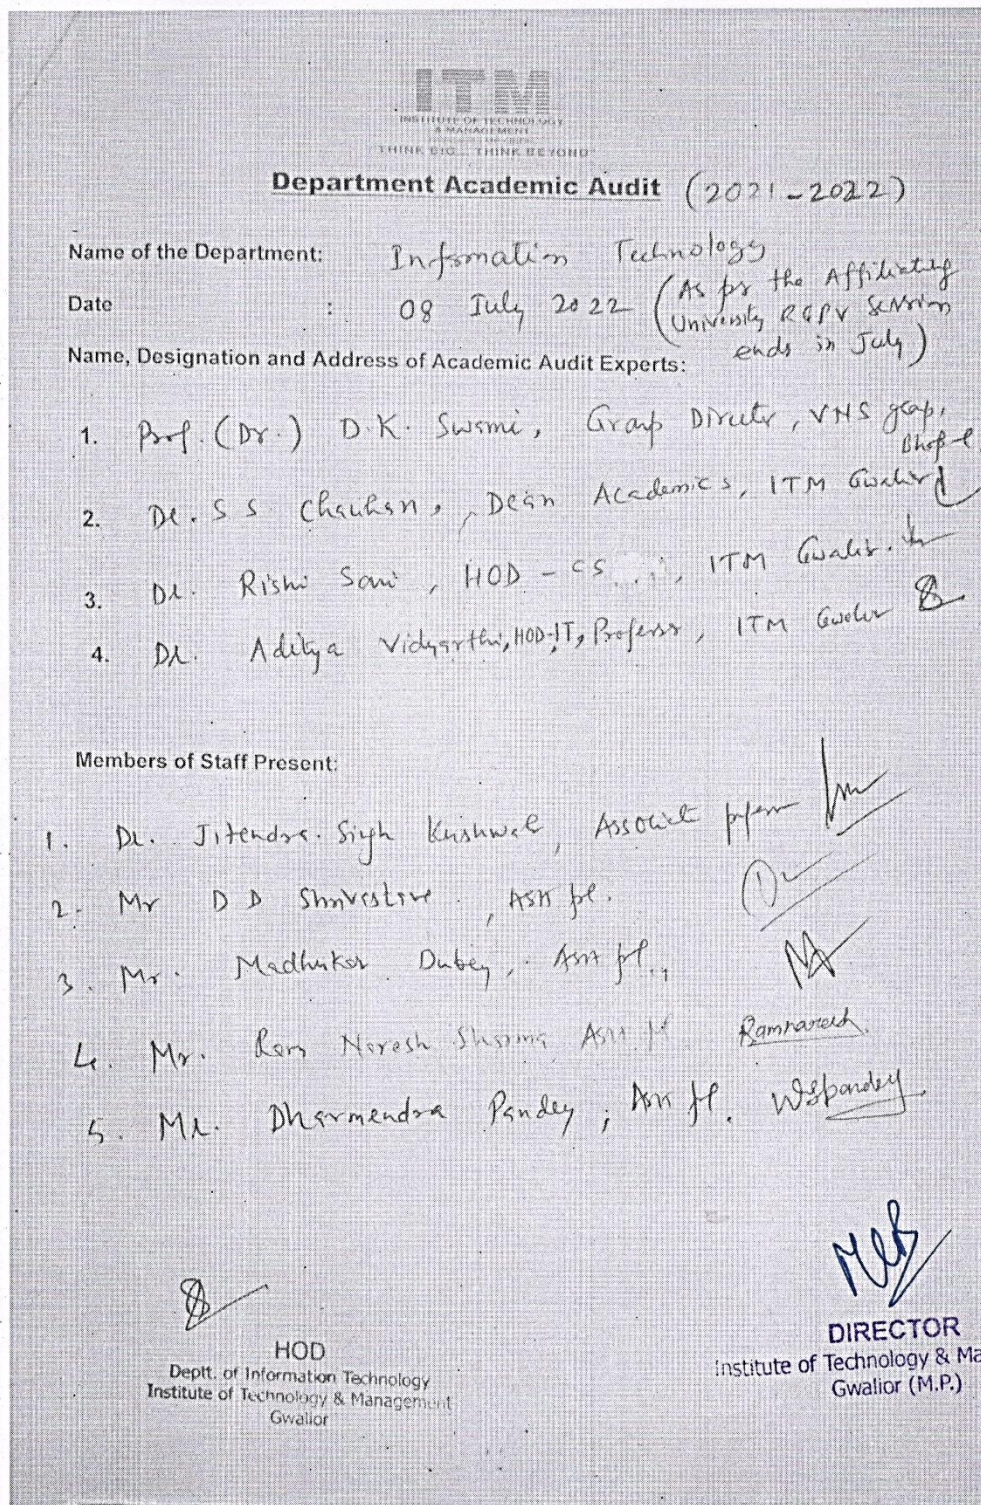 ITM
INSTITUTE OF TECHNOLOGY
& MANAGEMENT
"THINK BIG... THINK BEYOND"
Department Academic Audit (2021-2022)
Name of the Department: Information Technology
Date : 08 July 2022 (As per the Affiliating
University RGPV Session
ends in July)
Name, Designation and Address of Academic Audit Experts:
1. Prof. (Dr.) D.K. Swami, Group Director, VNS group,
Bhopal
2. Dr. S S Chauhan, Dean Academics, ITM Gwalior
3. Dr. Rishi Soni, HOD - CS, ITM Gwalior.
4. Dr. Aditya Vidyarthi, HOD-IT, Professor, ITM Gwalior
Members of Staff Present:
1. Dr. Jitendra Singh Kushwah, Associate professor
2. Mr D D Shrivastava, Asst
3. Mr. Madhukar Dubey, Asst
4. Mr. Ram Naresh Sharma Asst Ramnaresh
5. Mr. Dharmendra Pandey, Asst
HOD
Deptt. of Information Technology
Institute of Technology & Management
Gwalior
DIRECTOR
Institute of Technology & Ma
Gwalior (M.P.)